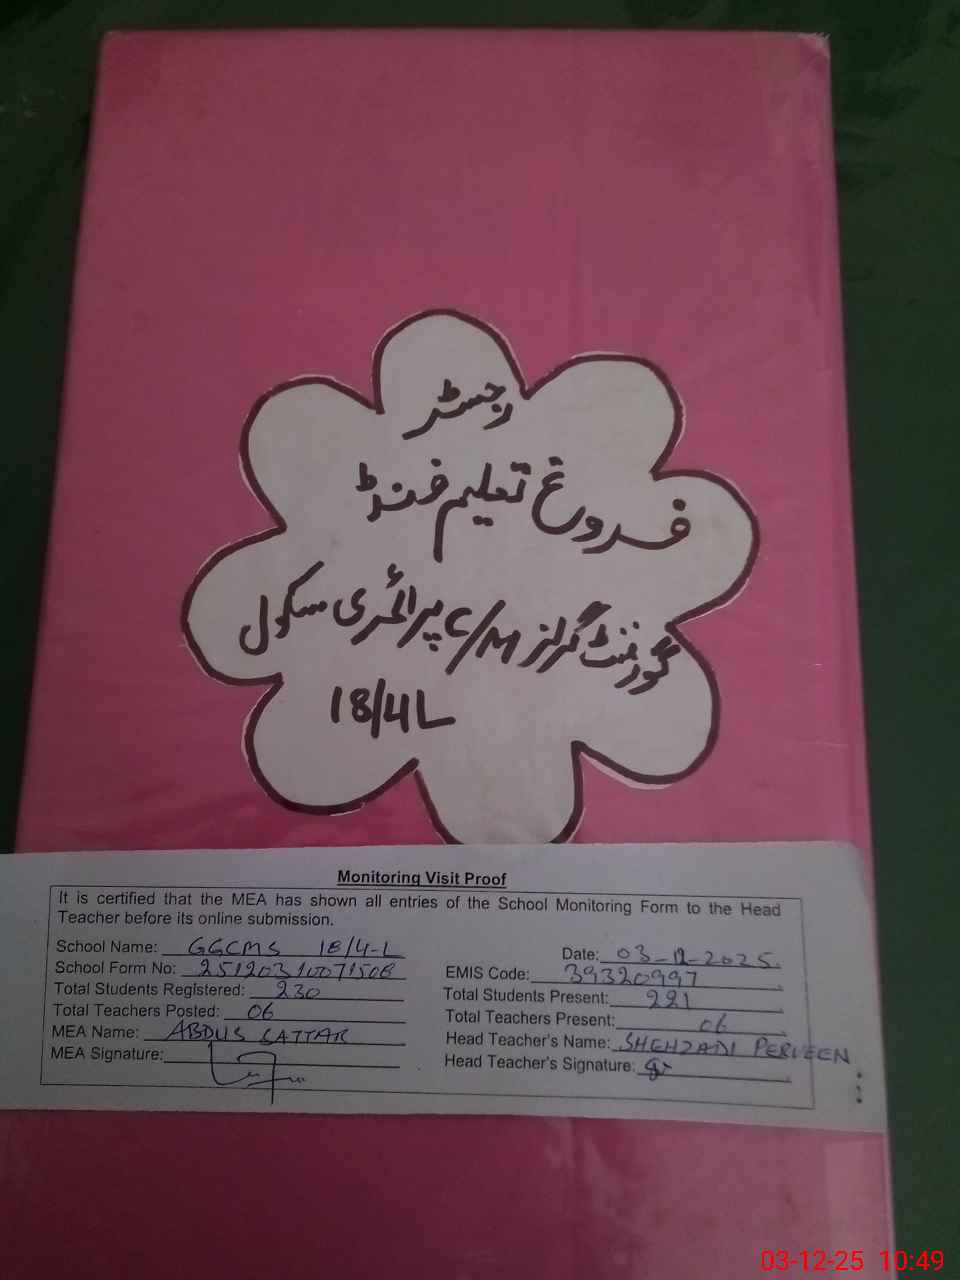 رجسٹر
فروغ تعلیم فنڈ
گورنمنٹ گرلز C/M پرائمری سکول
18/4L
Monitoring Visit Proof
It is certified that the MEA has shown all entries of the School Monitoring Form to the Head
Teacher before its online submission.
School Name: GGCMS 18/4-L Date: 03-12-2025
School Form No: EMIS Code: 39320997
Total Students Registered: 230 Total Students Present: 221
Total Teachers Posted: 06 Total Teachers Present: 06
MEA Name: ABDUS SATTAR Head Teacher's Name: SHEHZADI PERVEEN
MEA Signature: Head Teacher's Signature:
03-12-25 10:49